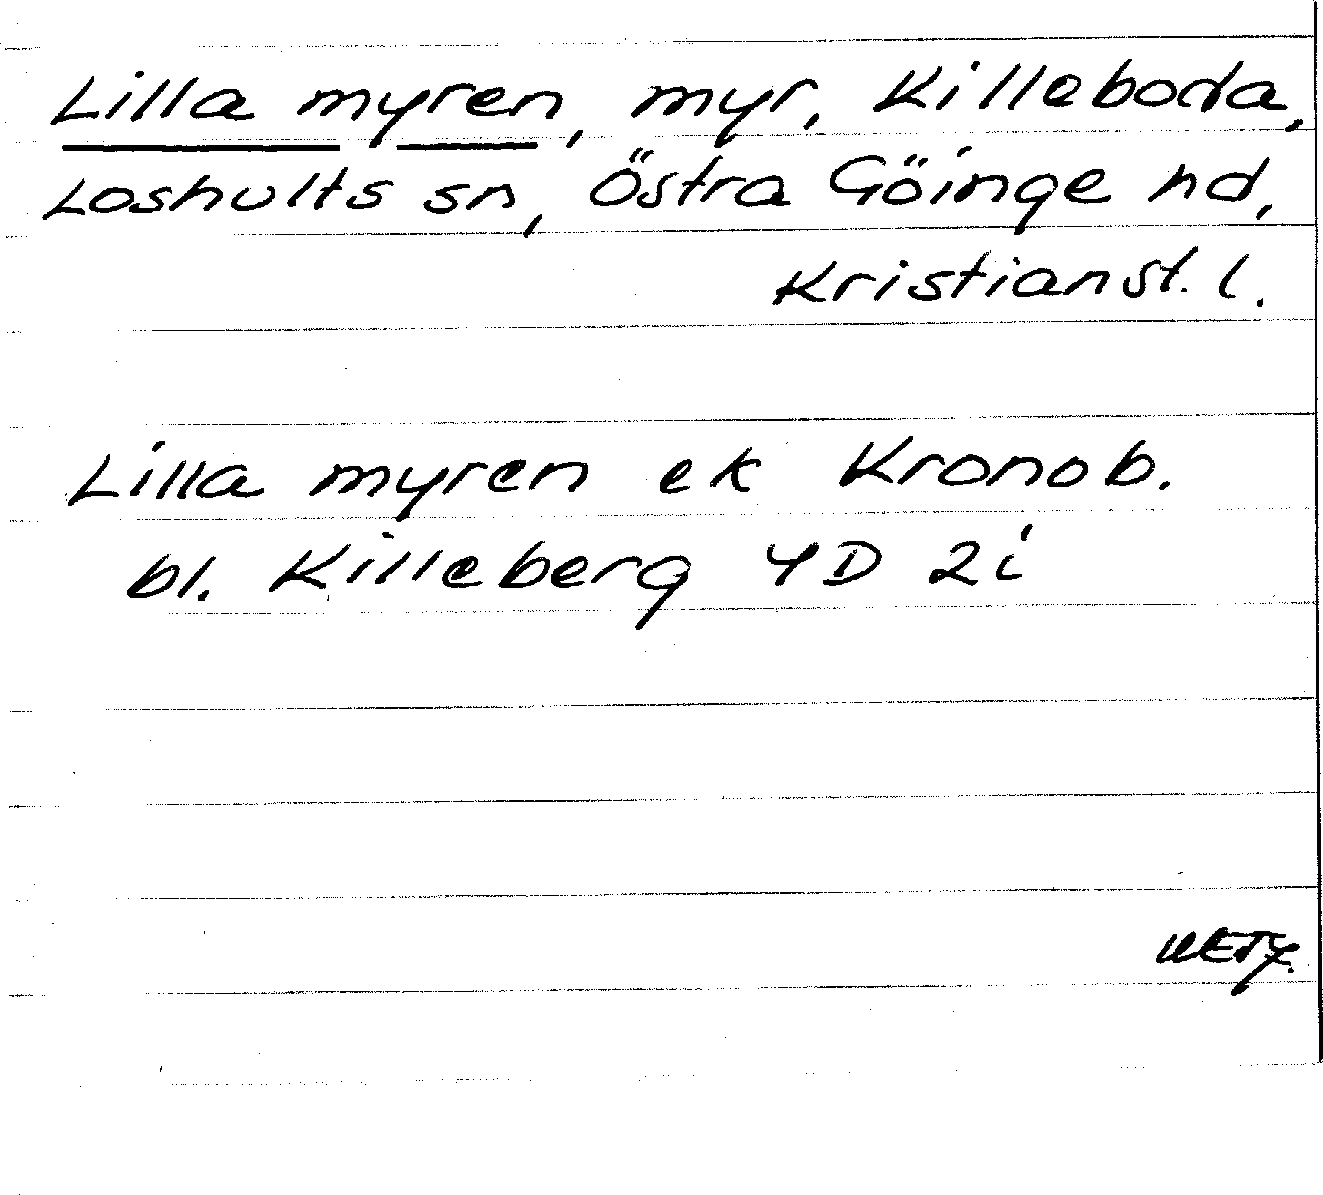 Lilla myren, myr, Killeboda,
Loshults sn, Östra Göinge hd,
Kristianst. l.
Lilla myren ek Kronob.
bl. Killeberg 4D 2i